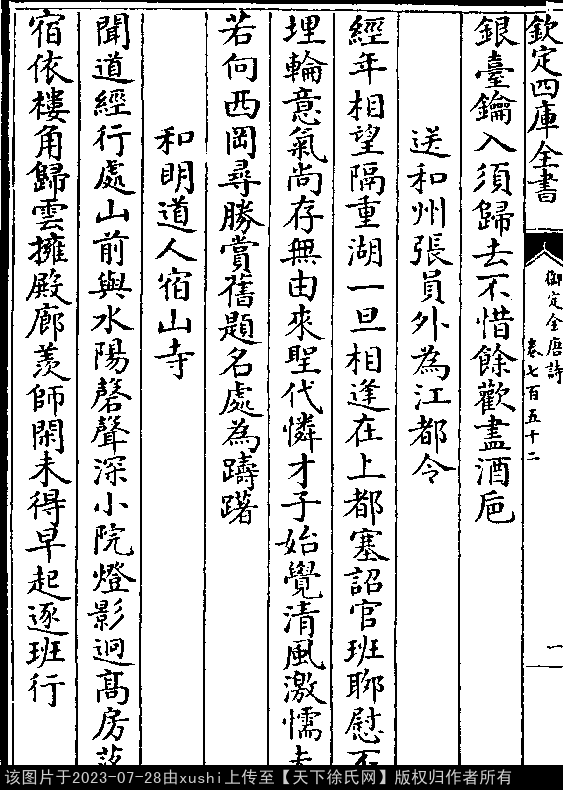 欽定四庫全書
御定全唐詩
卷七百五十二
一
銀臺鑰入須歸去不惜餘歡盡酒巵
送和州張員外為江都令
經年相望隔重湖一旦相逢在上都塞詔官班聊慰不
埋輪意氣尚存無由來聖代憐才子始覺清風激懦夫
若向西岡尋勝賞舊題名處為躊躇
和明道人宿山寺
聞道經行處山前與水陽磬聲深小院燈影迥髙房落
宿依樓角歸雲擁殿廊羨師閑未得早起逐班行
该图片于2023-07-28由xushi上传至【天下徐氏网】版权归作者所有